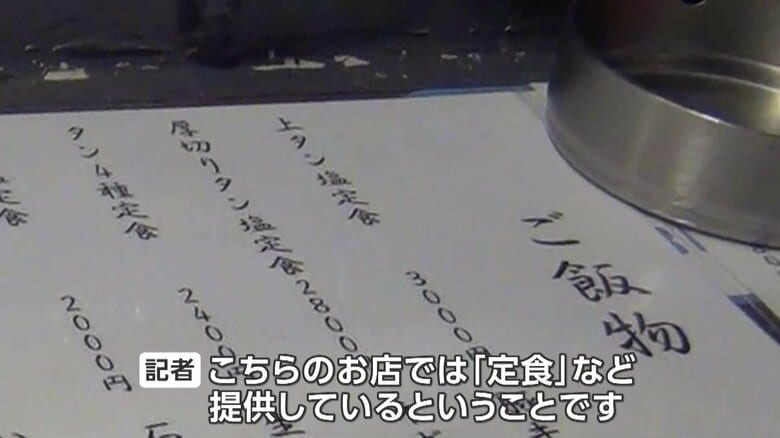 ご飯物
上タン塩定食 3000円
厚切りタン塩定食 2800
タン4種定食 2400円
定食 2000円
記者 こちらのお店では「定食」など
提供しているということです